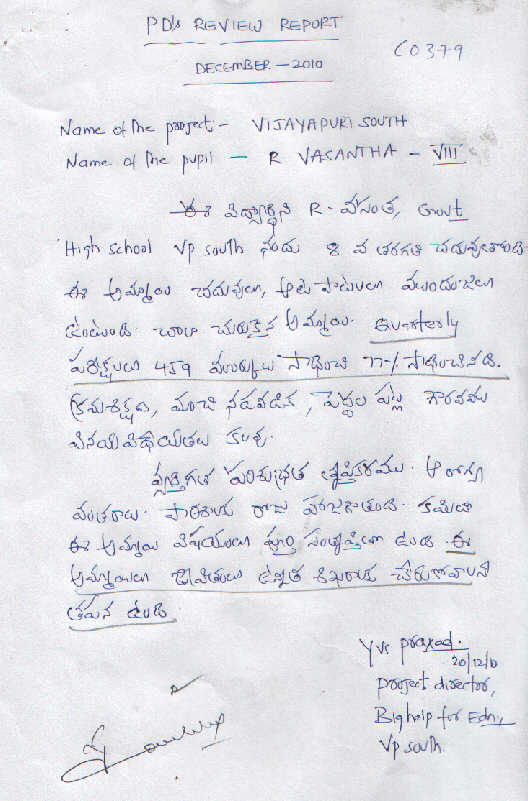 PD's REVIEW REPORT
DECEMBER - 2010
C0379
Name of the project:- VIJAYAPURI SOUTH
Name of the pupil - R VASANTHA - VIII
ఈ విద్యార్థిని R. వసంత, Govt
High school VP south నందు 8 వ తరగతి చదువుతోంది
ఈ అమ్మాయి చదువులు, ఆట పాటలలో ముందంజలో
ఉంటుంది. చాలా చురుకైన అమ్మాయి. Quarterly
పరీక్షలలో 459 మార్కులు సాధించి 77% సాధించినది.
క్రమశిక్షణ, మంచి నడవడిక, పెద్దల పట్ల గౌరవము
వినయవిధేయతలు కలవు.
వ్యక్తిగత పరిశుభ్రత తృప్తికరము. ఆరోగ్య
వంతురాలు. పాఠశాలకు రోజు హాజరౌతుంది. కమిటీ
ఈ అమ్మాయి విషయంలో పూర్తి సంతృప్తిగా ఉంది. ఈ
అమ్మాయిలో జీవితంలో ఉన్నత శిఖరాలకు చేరుకోవాలనే
తపన ఉంది.
YVS prasad.
20/12/10
project director,
Bighelp for Edn,
VP south